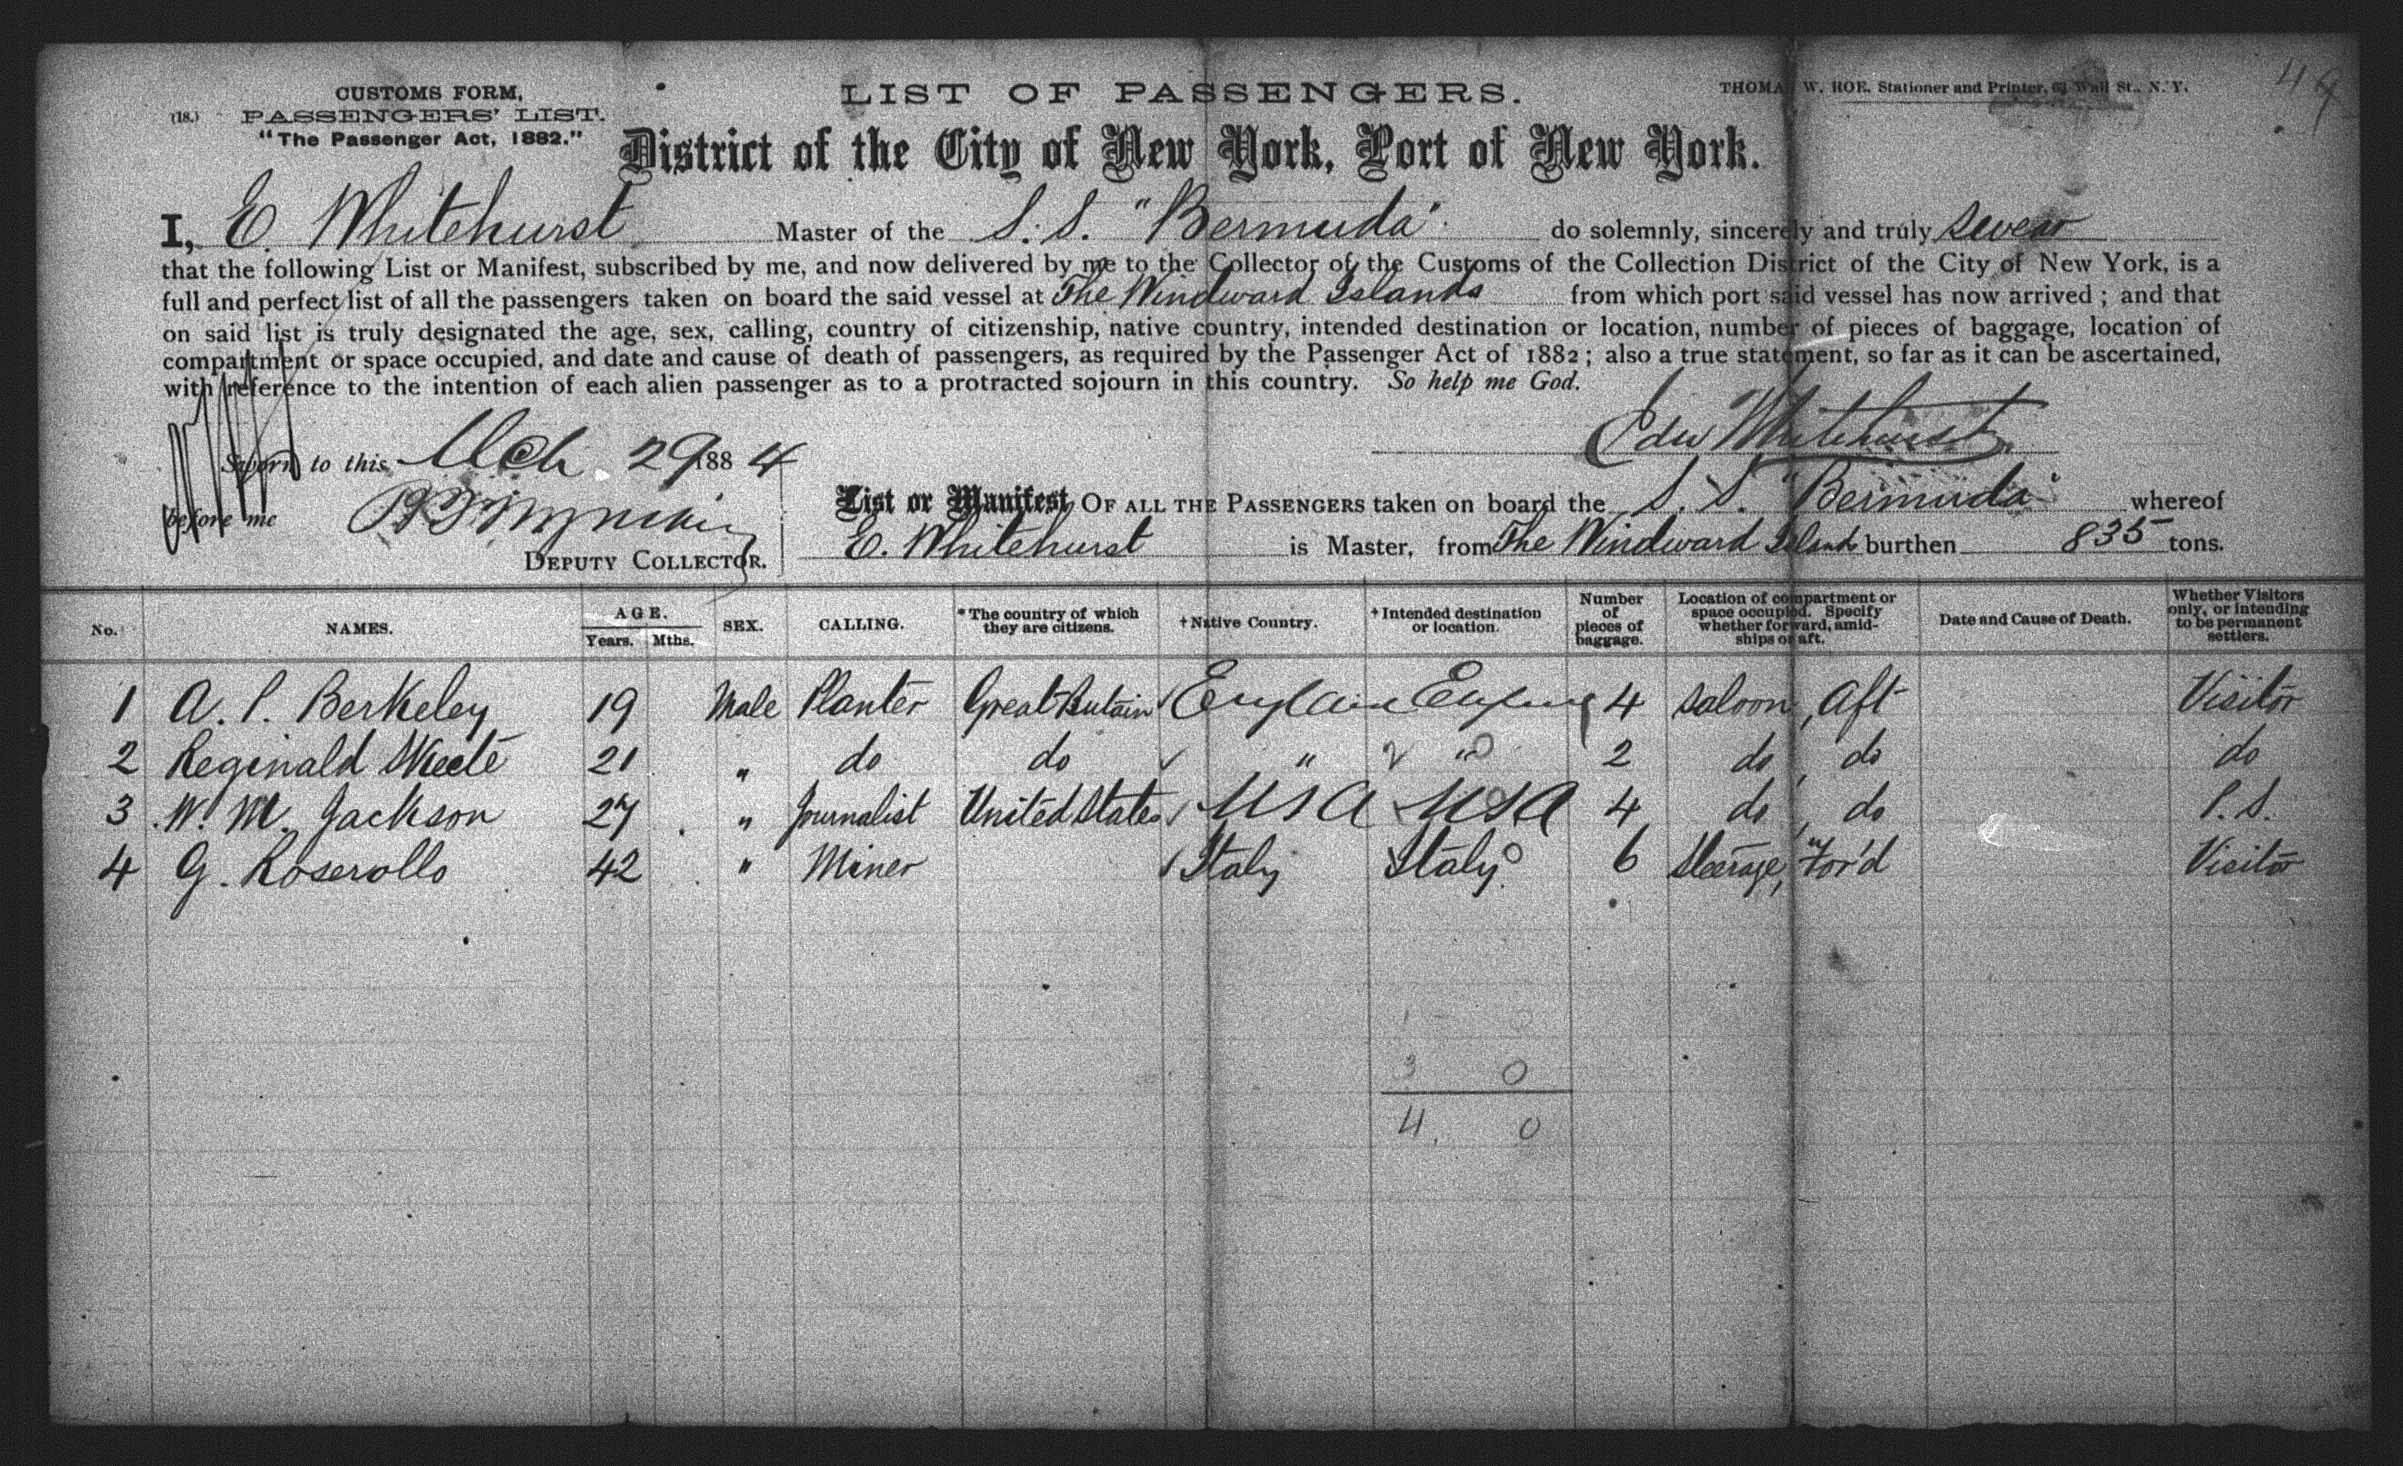 CUSTOMS FORM,
(18.) PASSENGERS' LIST.
"The Passenger Act, 1882."
LIST OF PASSENGERS.
THOMAS W. HOE, Stationer and Printer, 63 Wall St., N.Y.
District of the City of New York, Port of New York.
I, E. Whitehurst Master of the S.S. "Bermuda" do solemnly, sincerely and truly swear
that the following List or Manifest, subscribed by me, and now delivered by me to the Collector of the Customs of the Collection District of the City of New York, is a
full and perfect list of all the passengers taken on board the said vessel at The Windward Islands from which port said vessel has now arrived; and that
on said list is truly designated the age, sex, calling, country of citizenship, native country, intended destination or location, number of pieces of baggage, location of
compartment or space occupied, and date and cause of death of passengers, as required by the Passenger Act of 1882; also a true statement, so far as it can be ascertained,
with reference to the intention of each alien passenger as to a protracted sojourn in this country. So help me God.
Edw Whitehurst
Sworn to this Mch 29 1884
before me
DEPUTY COLLECTOR.
List or Manifest OF ALL THE PASSENGERS taken on board the S.S. "Bermuda" whereof
E. Whitehurst is Master, from The Windward Islands burthen 835 tons.
No. NAMES. AGE. Years. Mths. SEX. CALLING. *The country of which they are citizens. †Native Country. †Intended destination or location. Number of pieces of baggage. Location of compartment or space occupied. Specify whether forward, amidships or aft. Date and Cause of Death. Whether Visitors only, or intending to be permanent settlers.
1 A. P. Berkeley 19 Male Planter Great Britain England England 4 Saloon, Aft Visitor
2 Reginald Skeete 21 " do do " " 2 do, do do
3 W. M. Jackson 27 " Journalist United States U S A U S A 4 do, do P. S.
4 G. Roserollo 42 " Miner Italy Italy 6 Steerage, For'd Visitor
1 0
3 0
4. 0